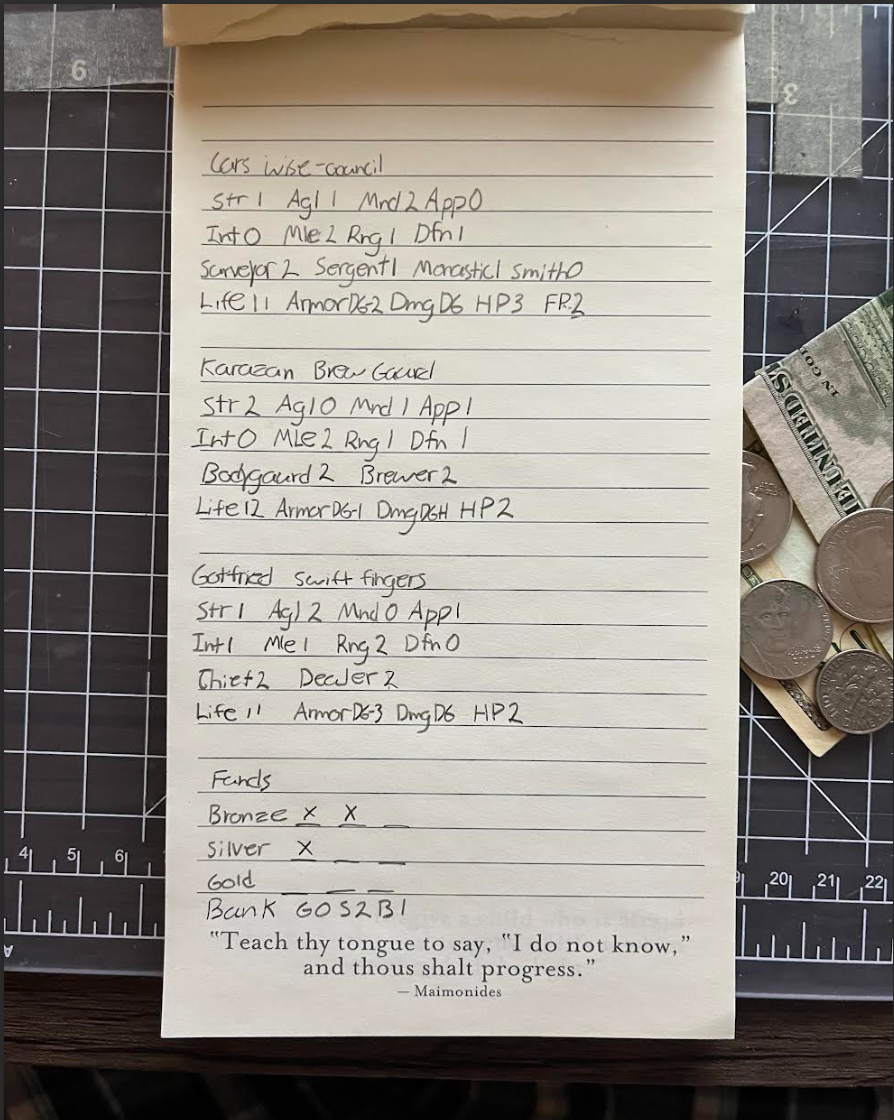 6
3
Lars wise-council
Str 1 Agl 1 Mnd 2 App 0
Int 0 Mle 2 Rng 1 Dfn 1
Surveyor 2 Sergent 1 Monastic 1 Smith 0
Life 11 Armor D6-2 Dmg D6 HP 3 FP 2
Karazan Brew Gaurd
Str 2 Agl 0 Mnd 1 App 1
Int 0 Mle 2 Rng 1 Dfn 1
Bodygaurd 2 Brewer 2
Life 12 Armor D6-1 Dmg D6+1 HP 2
Gotfried swift fingers
Str 1 Agl 2 Mnd 0 App 1
Int 1 Mle 1 Rng 2 Dfn 0
Thief 2 Dealer 2
Life 11 Armor D6-3 Dmg D6 HP 2
Funds
Bronze X X _
Silver X _ _
Gold _ _ _
Bank G0 S2 B1
"Teach thy tongue to say, "I do not know,"
and thous shalt progress."
— Maimonides
4 5 6
20 21 22
IN GOD
UNITED